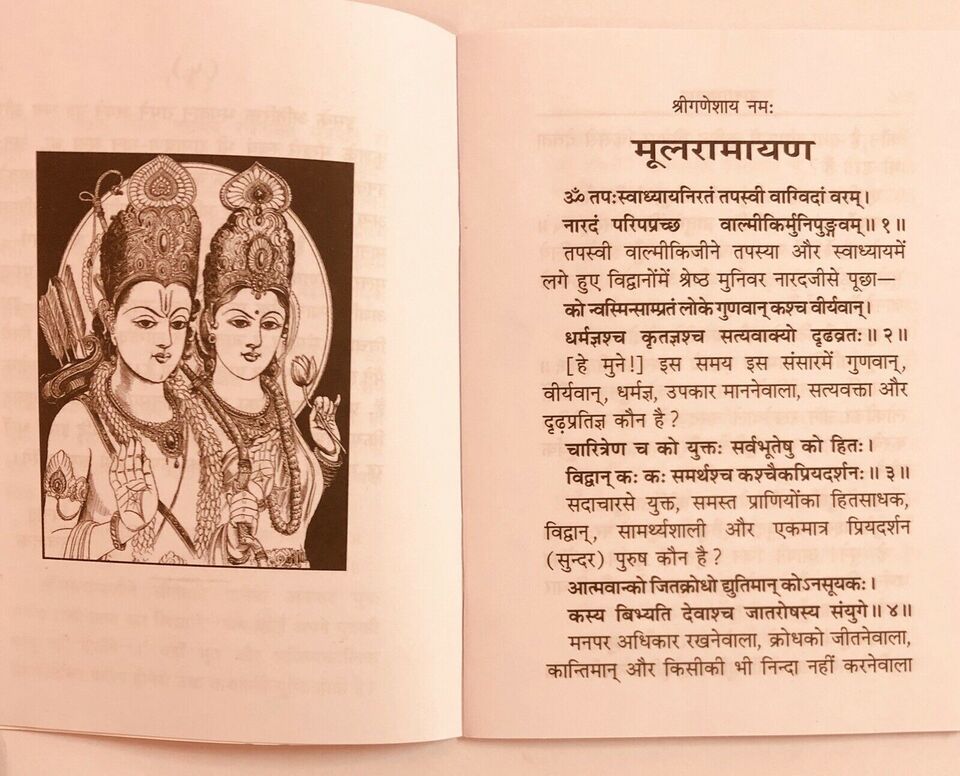 श्रीगणेशाय नम:
मूलरामायण
ॐ तप:स्वाध्यायनिरतं तपस्वी वाग्विदां वरम्।
नारदं परिपप्रच्छ वाल्मीकिर्मुनिपुङ्गवम्॥ १॥
तपस्वी वाल्मीकिजीने तपस्या और स्वाध्यायमें
लगे हुए विद्वानोंमें श्रेष्ठ मुनिवर नारदजीसे पूछा—
को न्वस्मिसाम्प्रतं लोके गुणवान् कश्च वीर्यवान्।
धर्मज्ञश्च कृतज्ञश्च सत्यवाक्यो दृढव्रत:॥ २॥
[हे मुने!] इस समय इस संसारमें गुणवान्,
वीर्यवान्, धर्मज्ञ, उपकार माननेवाला, सत्यवक्ता और
दृढ़प्रतिज्ञ कौन है?
चारित्रेण च को युक्त: सर्वभूतेषु को हित:।
विद्वान् क: क: समर्थश्च कश्चैकप्रियदर्शन:॥ ३॥
सदाचारसे युक्त, समस्त प्राणियोंका हितसाधक,
विद्वान्, सामर्थ्यशाली और एकमात्र प्रियदर्शन
(सुन्दर) पुरुष कौन है?
आत्मवान्को जितक्रोधो द्युतिमान् कोऽनसूयक:।
कस्य बिभ्यति देवाश्च जातरोषस्य संयुगे॥ ४॥
मनपर अधिकार रखनेवाला, क्रोधको जीतनेवाला,
कान्तिमान् और किसीकी भी निन्दा नहीं करनेवाला